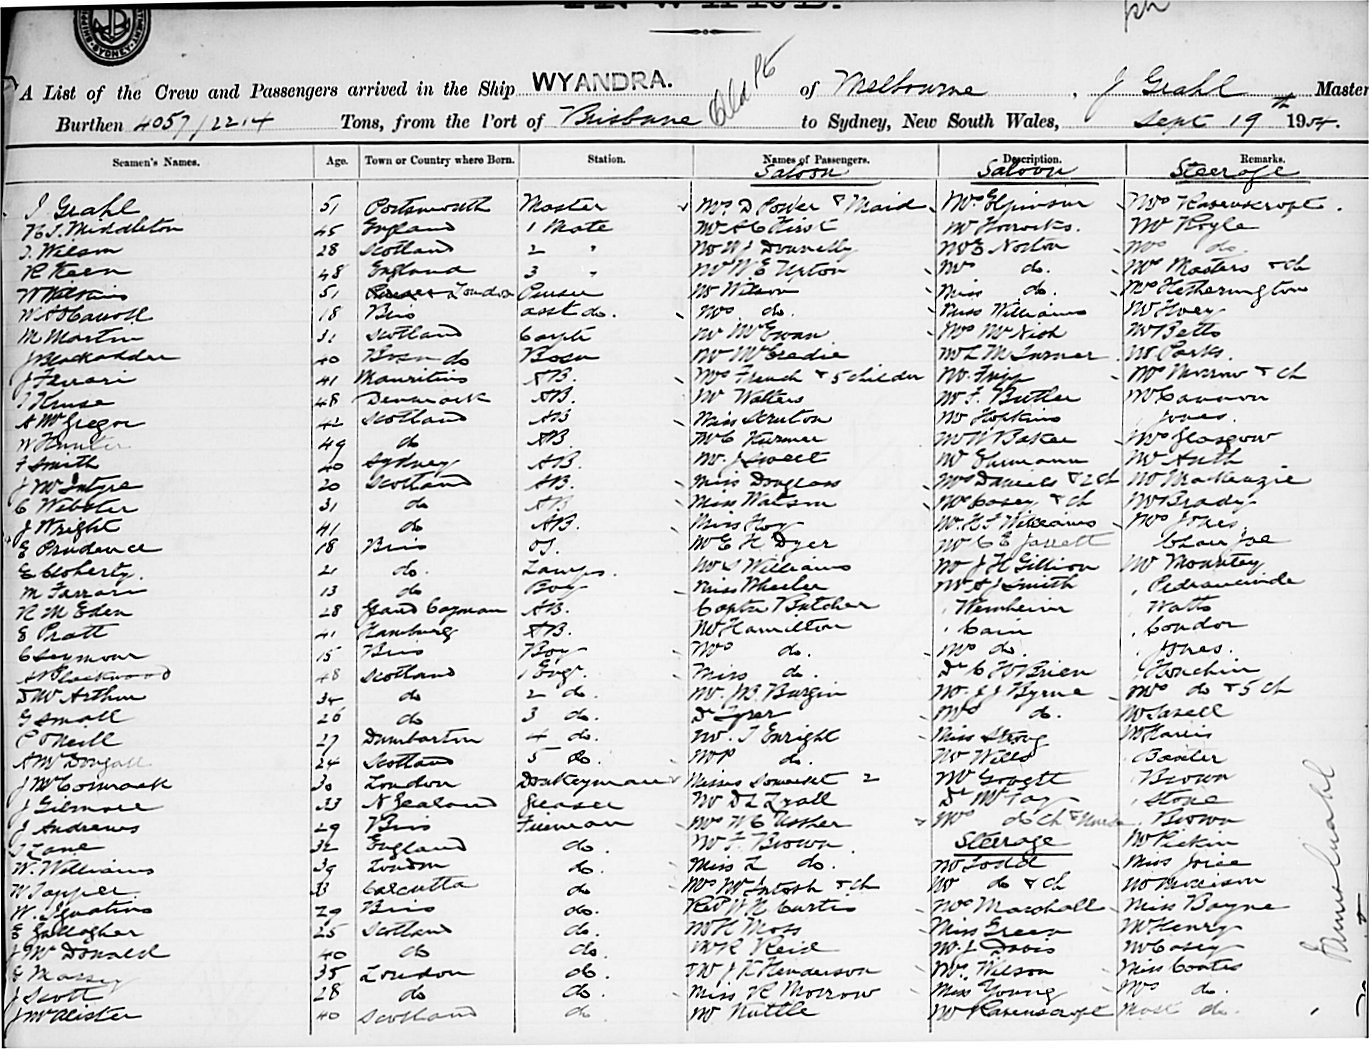 A List of the Crew and Passengers arrived in the Ship WYANDRA. of Melbourne, J Grahl Master
Burthen 4057/2214 Tons, from the Port of Brisbane to Sydney, New South Wales, Sept 19th 19
Seamen's Names. Age. Town or Country where Born. Station. Names of Passengers. Description. Remarks.
Saloon Saloon Steerage
J Grahl 51 Portsmouth Master Mr D Power & Maid Mrs Ravenscroft.
H. J. Middleton 45 England 1 Mate Mr A C Mr Horrocks. Mr Royle
J. Wilson 28 Scotland 2 " Mr W J Donnelly Mr E Norton Mrs do.
R Keen 48 England 3 " Mr W E Upton Mrs do. Mrs Masters & ch
W Watkins 51 London Purser Mr Wilson Miss do. Mrs Hetherington
18 Bris asst do. Mrs do. Miss Williams Mr Hoey
M Martin 31 Scotland Carptr Mr McEwan Mrs McNish Mr Betts
J Blackadder 40 do Bosn Mr McCredie Mr Parks.
J Farrari 41 Mauritius AB. Mrs French & 5 childer Mr Fripp Mrs Morrow & ch
J Kruse 48 Denmark AB. Mr Walters Mr F. Butler Mr Cannon
A McGregor 42 Scotland AB Miss Scruton Mr Hoskins Jones.
W Hunter 49 do AB. Mr C Mr W Baker Mrs Glasgow
F Smith 40 Sydney AB. Mr J Sweet Mr Ehrmann Mr Auth
J McIntyre 20 Scotland AB. Miss Douglass Mrs Daniels & 2 ch Mr Mackenzie
C Webster 31 do AB Miss Watson Mrs Casey & ch Mr Brady
J Wright 41 do AB. Miss Hoy Mr H J Williams Mrs Jones.
E Prudence 18 Bris OS. Mr E H Dyer Mr C E Jarrett
E Cloherty. 21 do. Lamps. Mr S Williams Mr J H Gillion
M Farrari 13 do Boy Miss Wheeler Mr A J Smith
R M Eden 28 Grand Cayman AB. Captn Butcher Watts
E Pratt 41 Hamburg AB. Mr Hamilton Cain Condon
C Seymour 15 Bris Boy Mrs do. Mrs do. Jones.
A Blackwood 48 Scotland 1 Engr. Miss do. Dr C W O'Brien Houchin
D McArthur 34 do 2 do. Mr. J B Burgin Mr. J J Byrne Mrs do & 5 ch
G Small 26 do 3 do. Dr Mrs do.
C O'Neill 27 Dumbarton 4 do. Mr. J Enright Miss Strong Mr Harris
A McDougall 24 Scotland 5 do. do. Mr Wills Baxter
J McCormack 30 London Donkeyman Misses Somerset 2 Mr Govett Brown
J Gilmore 33 N Zealand Greaser Mr D L Lyall Dr McTay Stone
J Andrews 29 Bris Fireman Mrs W C Ussher Mrs do ch & Nurse Brown
J Lane 32 England do. Mr F. Brown Steerage
W. Williams 39 London do. Miss L do. Mr Todd Miss Joice
W Tapper 33 Calcutta do Mrs McIntosh & ch Mr do & ch Mr Morrison
W. Ignatius 29 Bris do. Revd W R Curtis Mrs Marshall Miss Bayne
E Gallagher 25 Scotland do. Mr H Moss Miss Green Mr Henry
J McDonald 40 do do. Mr R Reid Mr L. Davis Mr Casey
G Massey 35 London do. Mr J K Henderson Mr. Wilson Miss Coates
J Scott 28 do do. Miss R Morrow Miss Young Mrs do.
J McAlister 40 Scotland do. Mr Nuttle Mr Ravenscroft Mast do.